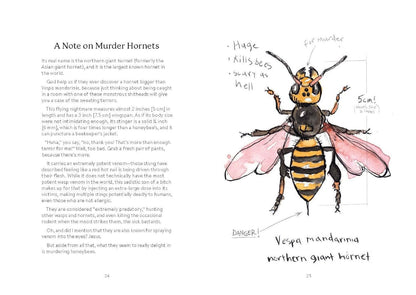 A Note on Murder Hornets
Its real name is the northern giant hornet (formerly the
Asian giant hornet), and it is the largest known hornet in
the world.
God help us if they ever discover a hornet bigger than
Vespa mandarinia, because just thinking about being caught
in a room with one of these monstrous shitheads will give
you a case of the sweating terrors.
This flying nightmare measures almost 2 inches [5 cm] in
length and has a 3 inch [7.5 cm] wingspan. As if its body size
were not intimidating enough, its stinger is a solid ¼ inch
[6 mm], which is four times longer than a honeybee's, and it
can puncture a beekeeper's jacket.
"Haha," you say, "no, thank you! That's more than enough
terror for me!" Well, too bad. Grab a fresh pair of pants,
because there's more.
It carries an extremely potent venom—those stung have
described feeling like a red hot nail is being driven through
their flesh. While it does not technically have the most
potent wasp venom in the world, this sadistic son of a bitch
makes up for that by injecting an extra-large dose into its
victims, making multiple stings potentially deadly to humans,
even those who are not allergic.
They are considered "extremely predatory," hunting
other wasps and hornets, and even killing the occasional
rodent when the mood strikes them, the sick bastards.
Oh, and did I mention that they are also known for spraying
venom into the eyes? Jesus.
But aside from all that, what they seem to really delight in
is murdering honeybees.
24
• Huge
• Kills bees
• Scary as
hell
for murder
5cm!
DANGER!
Vespa mandarinia
northern giant hornet
25